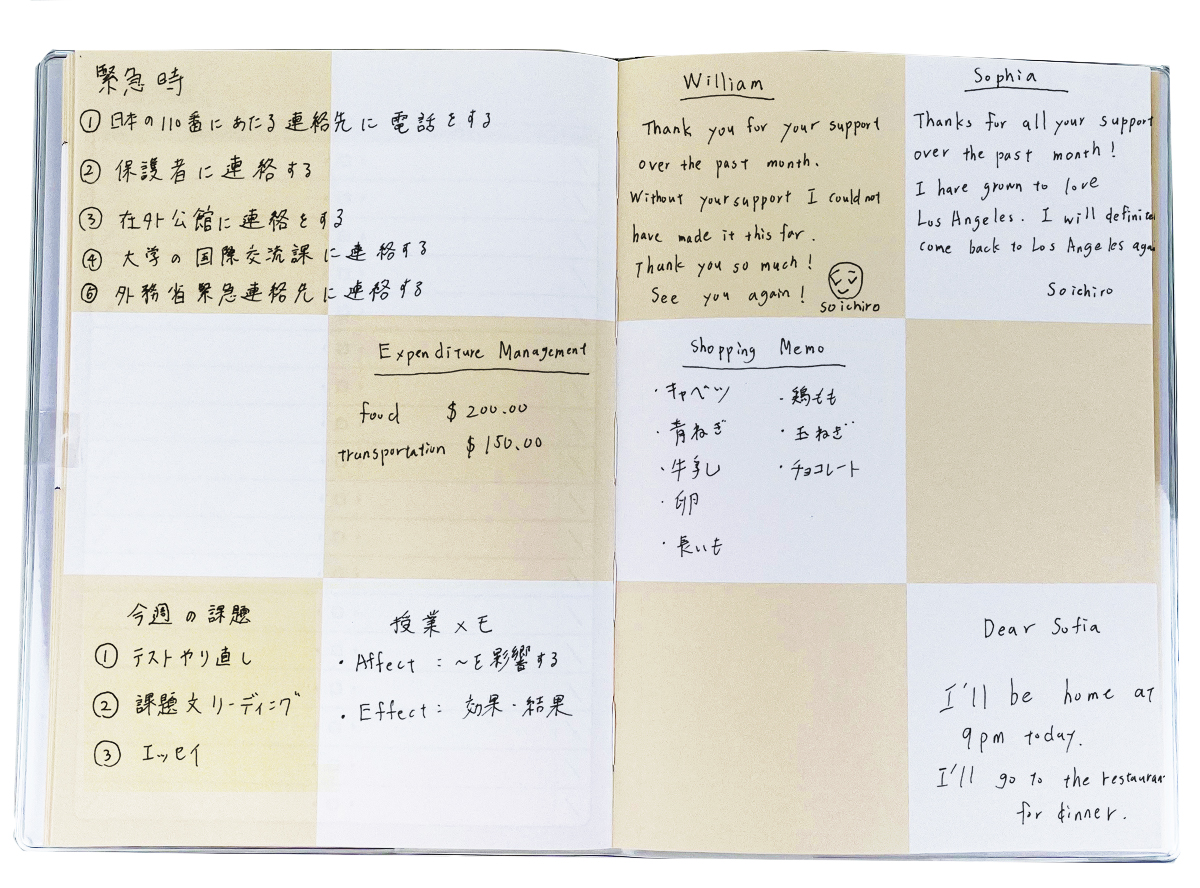 緊急時
① 日本の110番にあたる連絡先に電話をする
② 保護者に連絡する
③ 在外公館に連絡をする
④ 大学の国際交流課に連絡する
⑤ 外務省緊急連絡先に連絡する
Expenditure Management
food $200.00
transportation $150.00
今週の課題
① テストやり直し
② 課題文リーディング
③ エッセイ
授業メモ
・Affect : 〜を影響する
・Effect : 効果・結果
William
Thank you for your support
over the past month.
Without your support I could not
have made it this far.
Thank you so much!
See you again!
Soichiro
Sophia
Thanks for all your support
over the past month!
I have grown to love
Los Angeles. I will definite
come back to Los Angeles aga
Soichiro
Shopping Memo
・キャベツ
・青ねぎ
・牛乳
・卵
・長いも
・鶏もも
・玉ねぎ
・チョコレート
Dear Sofia
I'll be home at
9pm today.
I'll go to the restauran
for dinner.